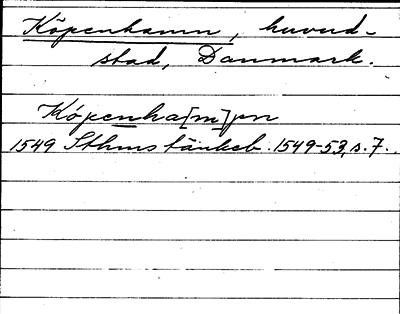 Köpenhamn, huvud-
stad, Danmark.
Köpenha[m]pn
1549 Sthms tänkeb. 1549-53, s. 7.